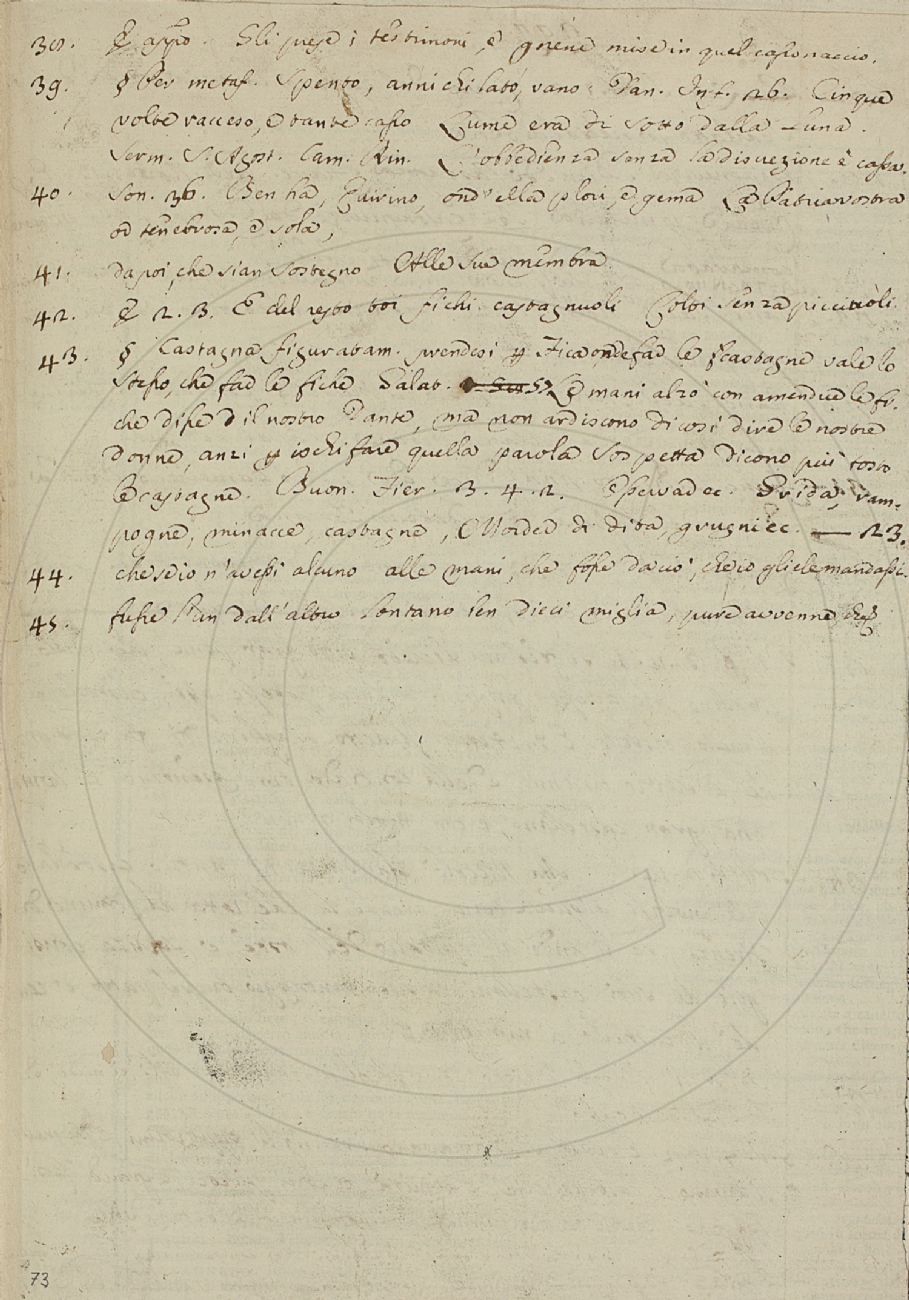 38. E appo. Gli prese i testimoni, e gnene mise in quel cassonaccio.
39. § Per metaf. Spento, annichilato, vano. Dan. Inf. 26. Cinque
volte racceso, e tante casso Lume era di sotto dalla Luna.
Serm. S. Agost. Cam. Rin. L'obbedienza senza la discrezione è cassa.
40. Son. 36. Ben ha, Quirino, ond'ella plori, e gema La Patria vostra
or tenebrosa, e sola,
41. dapoi, che sian sostegno Alle sue membra.
42. E 2. 3. E del resto toi fichi castagnuoli Colti senza picciuoli.
43. § Castagna figuratam. prendesi per Fica, onde far le castagne vale lo
stesso, che far le fiche. Salv. Le mani alzò con amendue le fi-
che disse il nostro Dante, ma non ardiscono di così dire le nostre
donne, anzi per ischifare quella parola sospetta dicono più tosto
le castagne. Buon. Fier. 3. 4. 2. Grida, ram-
pogne, minacce, castagne, Morder di dita, grugni ec. — 23.
44. che se io n'avessi alcuno alle mani, che fosse da ciò, che io gliele mandassi.
45. fusse l'un dall'altro lontano ben dieci miglia, pure avvenne,
73